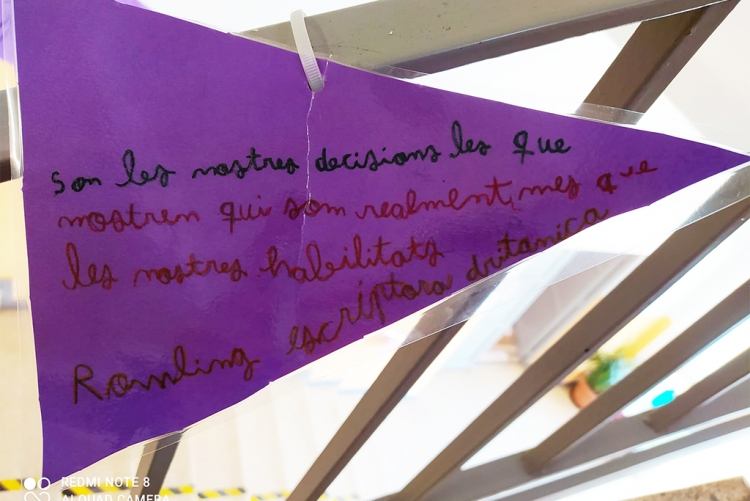 Son les nostres decisions les que
mostren qui som realment, mes que
les nostres habilitats
Rowling escriptora dritanica
REDMI NOTE 8
AI QUAD CAMERA